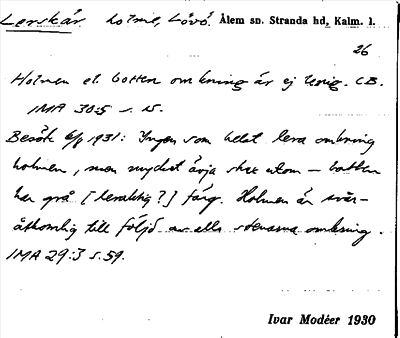 Lerskär. holme, Lövö. Ålem sn. Stranda hd, Kalm. l.
26
Holmen el. botten omkring är ej lerig. CB.
IMA 30:5 s. 15.
Besök 6/8 1931: Ingen som helst lera omkring
holmen, men mycket ävja strax utom – botten
har grå [leraktig?] färg. Holmen är svår-
åtkomlig till följd av alla stenarna omkring.
IMA 29:3 s. 59.
Ivar Modéer 1930